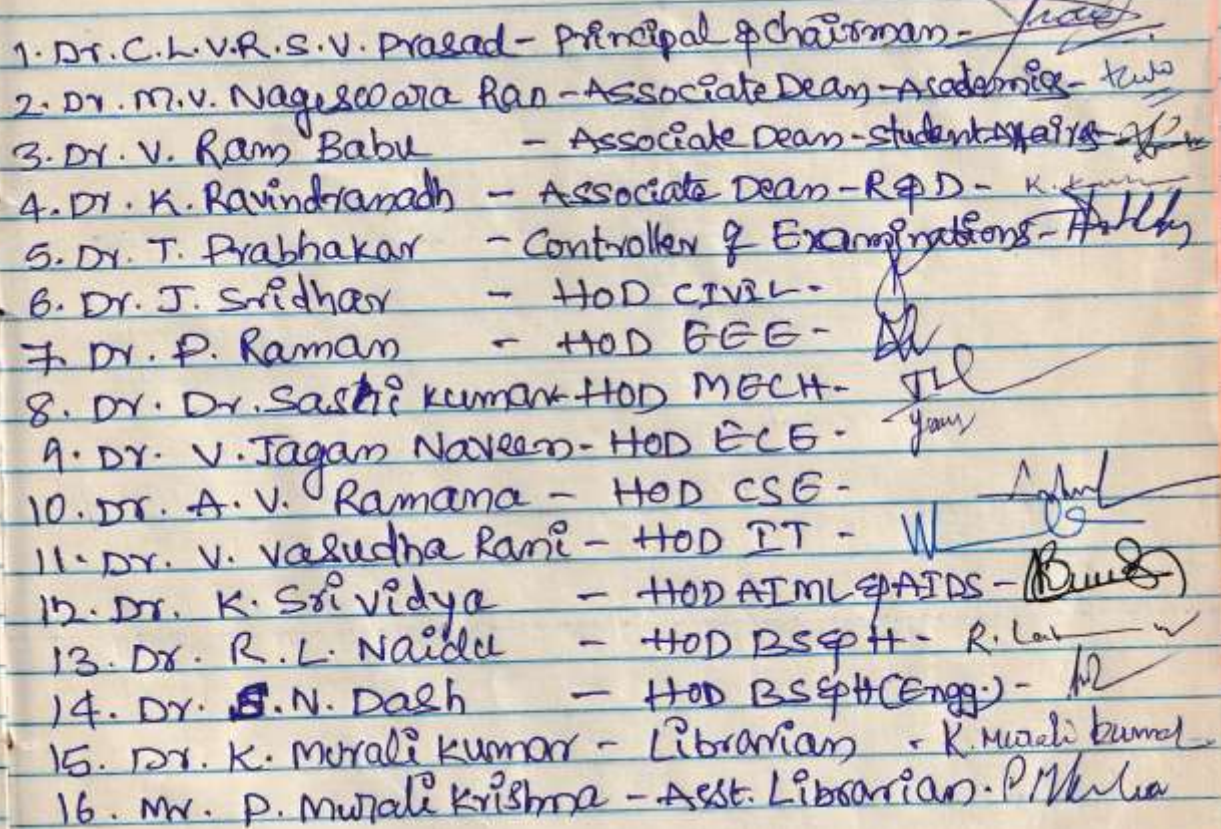 1. Dr. C.L.V.R.S.V. Prasad - Principal & Chairman -
2. Dr. M.V. Nageswara Rao - Associate Dean - Academics -
3. Dr. V. Ram Babu - Associate Dean - Student Affairs -
4. Dr. K. Ravindranadh - Associate Dean - R&D - K.
5. Dr. T. Prabhakar - Controller of Examinations -
6. Dr. J. Sridhar - HOD CIVIL -
7. Dr. P. Raman - HOD EEE -
8. Dr. Dr. Sashi Kumar - HOD MECH -
9. Dr. V. Jagan Naveen - HOD ECE -
10. Dr. A. V. Ramana - HOD CSE -
11. Dr. V. Vasudha Rani - HOD IT -
12. Dr. K. Srividya - HOD AIML & AIDS -
13. Dr. R. L. Naidu - HOD BS&H - R.
14. Dr. S. N. Dash - HOD BS&H (Engg.) -
15. Dr. K. Murali Kumar - Librarian - K. Murali Kumar
16. Mr. P. Murali Krishna - Asst. Librarian.